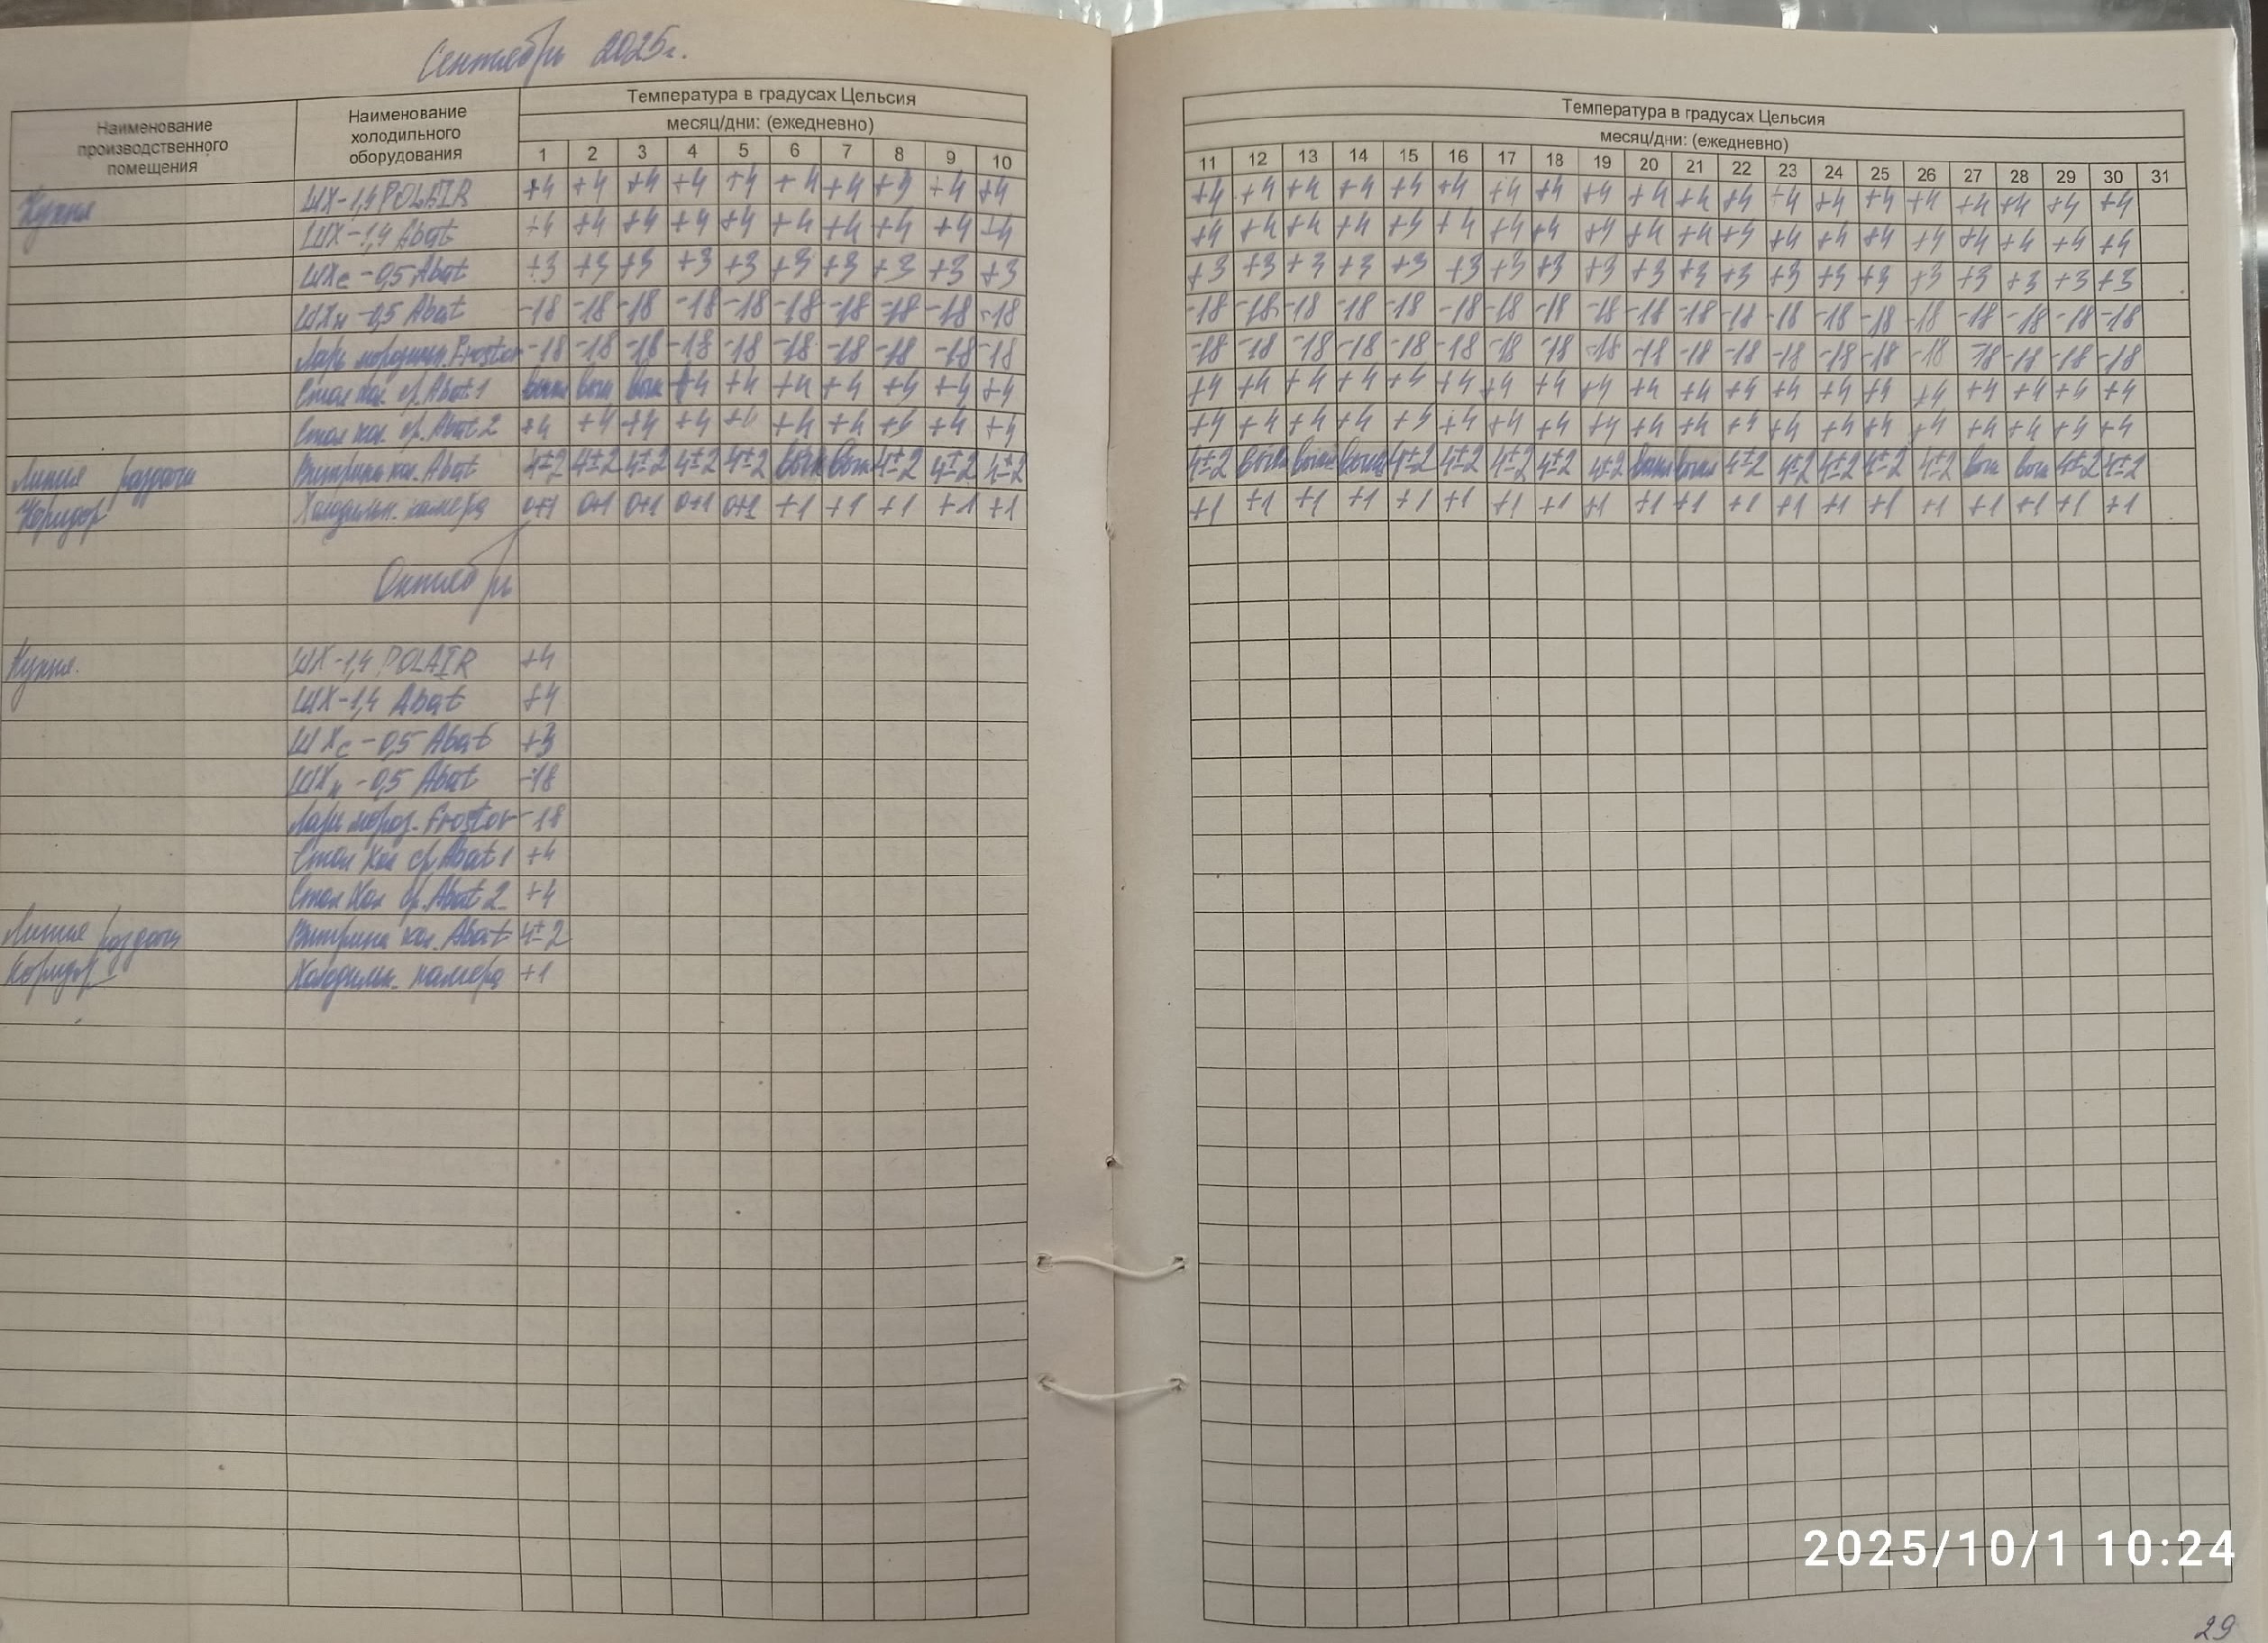 Сентябрь 2025г.
Наименование производственного помещения Наименование холодильного оборудования Температура в градусах Цельсия
месяц/дни: (ежедневно)
1 2 3 4 5 6 7 8 9 10
Температура в градусах Цельсия
месяц/дни: (ежедневно)
11 12 13 14 15 16 17 18 19 20 21 22 23 24 25 26 27 28 29 30 31
Кухня ШХ-1,4 POLAIR +4 +4 +4 +4 +4 +4 +4 +3 +4 +4 +4 +4 +4 +4 +4 +4 +4 +4 +4 +4 +4 +4 +4 +4 +4 +4 +4 +4 +4 +4
ШХ-1,4 Abat +4 +4 +4 +4 +4 +4 +4 +4 +4 +4 +4 +4 +4 +4 +4 +4 +4 +4 +4 +4 +4 +4 +4 +4 +4 +4 +4 +4 +4 +4
ШХс-0,5 Abat +3 +3 +3 +3 +3 +3 +3 +3 +3 +3 +3 +3 +3 +3 +3 +3 +3 +3 +3 +3 +3 +3 +3 +3 +3 +3 +3 +3 +3 +3
ШХн-0,5 Abat -18 -18 -18 -18 -18 -18 -18 -18 -18 -18 -18 -18 -18 -18 -18 -18 -18 -18 -18 -18 -18 -18 -18 -18 -18 -18 -18 -18 -18 -18
Ларь морозильн. Frostor -18 -18 -18 -18 -18 -18 -18 -18 -18 -18 -18 -18 -18 -18 -18 -18 -18 -18 -18 -18 -18 -18 -18 -18 -18 -18 -18 -18 -18 -18
Стол хол. ср. Abat 1 выкл вык вык +4 +4 +4 +4 +4 +4 +4 +4 +4 +4 +4 +4 +4 +4 +4 +4 +4 +4 +4 +4 +4 +4 +4 +4 +4 +4 +4
Стол хол. ср. Abat 2 +4 +4 +4 +4 +4 +4 +4 +4 +4 +4 +4 +4 +4 +4 +4 +4 +4 +4 +4 +4 +4 +4 +4 +4 +4 +4 +4 +4 +4 +4
Линия раздачи Витрина хол. Abat 4±2 4±2 4±2 4±2 4±2 выкл выкл 4±2 4±2 4±2 4±2 выкл выкл выкл 4±2 4±2 4±2 4±2 4±2 выкл выкл 4±2 4±2 4±2 4±2 4±2 вык вык 4±2 4±2
Коридор Холодильн. камера 0+1 0+1 0+1 0+1 0+1 +1 +1 +1 +1 +1 +1 +1 +1 +1 +1 +1 +1 +1 +1 +1 +1 +1 +1 +1 +1 +1 +1 +1 +1 +1
Октябрь
Кухня. ШХ-1,4 POLAIR +4
ШХ-1,4 Abat +4
ШХс-0,5 Abat +3
ШХн-0,5 Abat -18
Ларь мороз. Frostor -18
Стол Хол ср Abat 1 +4
Стол Хол ср. Abat 2 +4
Линия раздачи Витрина хол. Abat 4±2
Коридор Холодильн. камера +1
2025/10/1 10:24
29